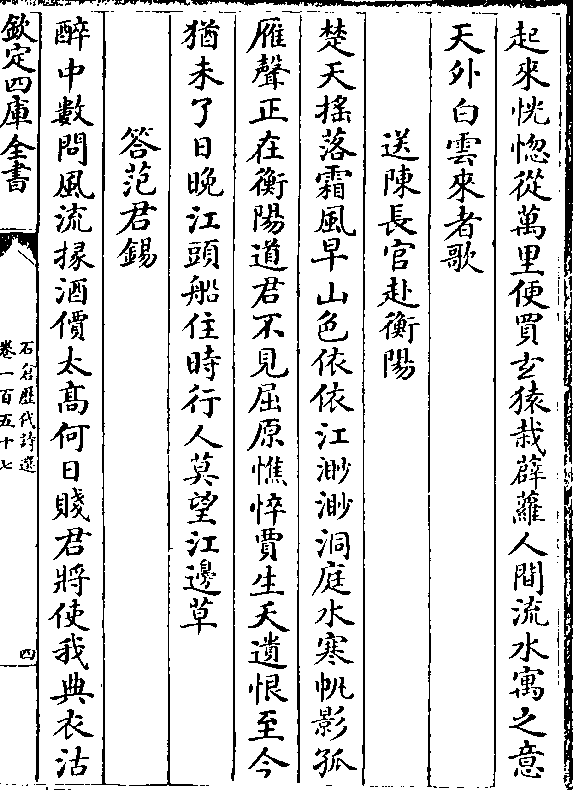 起來恍惚從萬里便買𤣥猿栽薜蘿人間流水寓之意
天外白雲來者歌
送陳長官赴衡陽
楚天揺落霜風早山色依依江渺渺洞庭水寒帆影孤
雁聲正在衡陽道君不見屈原憔悴賈生夭遺恨至今
猶未了日晚江頭船住時行人莫望江邊草
答范君錫
醉中數問風流掾酒價太髙何日賤君將使我典衣沽
欽定四庫全書
石倉歷代詩選
卷一百五十七
四